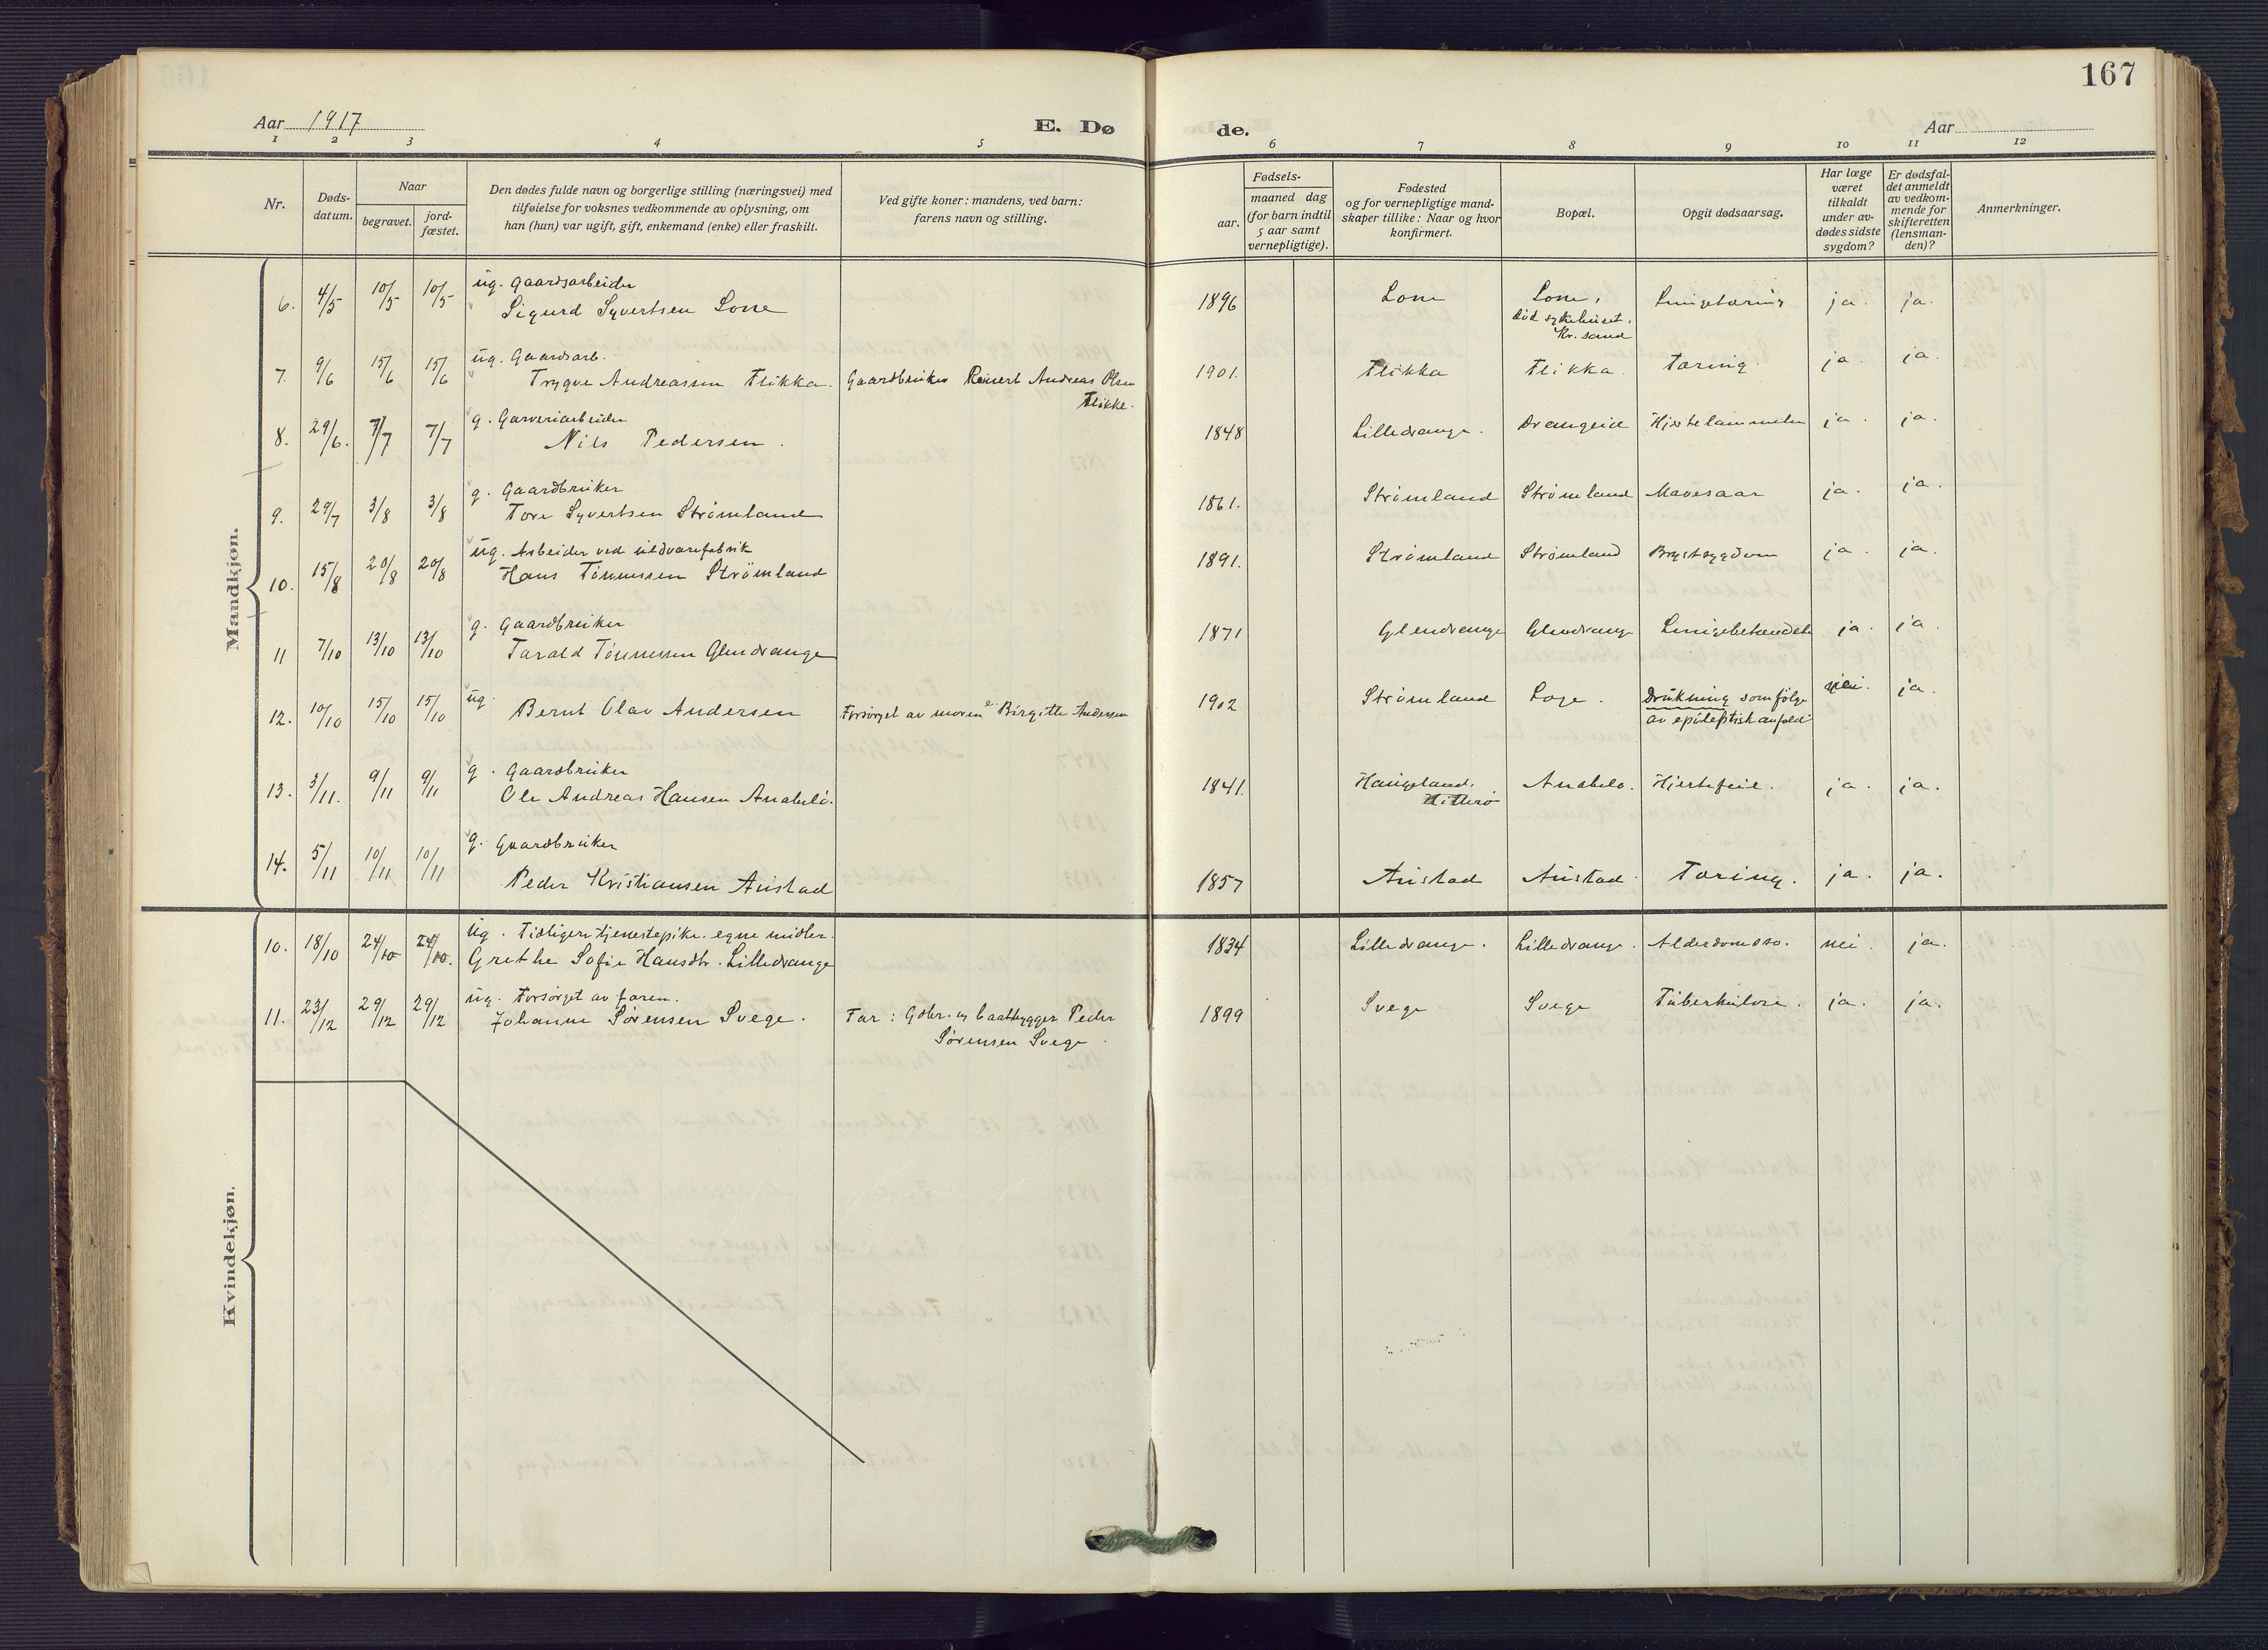 167
Aar 1917
E. Dø
de.
Aar
1 2 3 4 5 6 7 8 9 10 11 12
Nr.
Døds-
datum.
Naar
begravet.
jord-
fæstet.
Den dødes fulde navn og borgerlige stilling (næringsvei) med
tilføielse for voksnes vedkommende av oplysning, om
han (hun) var ugift, gift, enkemand (enke) eller fraskilt.
Ved gifte koner: mandens, ved barn:
farens navn og stilling.
Fødsels-
aar.
maaned dag
(for barn indtil
5 aar samt
vernepligtige).
Fødested
og for vernepligtige mand-
skaper tillike: Naar og hvor
konfirmert.
Bopæl.
Opgit dødsaarsag.
Har læge
været
tilkaldt
under av-
dødes sidste
sygdom?
Er dødsfal-
det anmeldt
av vedkom-
mende for
skifteretten
(lensman-
den)?
Anmerkninger.
Mandkjøn.
ug. Gaardsarbeider
6. 4/5 10/5 10/5 Sigurd Syvertsen Lone 1896 Lone Lone, Lungetæring ja. ja.
død sykehuset.
Kr. sand
ug. Gaardsarb.
7. 9/6 15/6 15/6 Trygve Andreassen Flikka. Gaardbruker Reinert Andreas Olsen 1901. Flikka Flikka Tæring. ja. ja.
Flikke.
g. Garveriarbeider
8. 29/6. 7/7 7/7 Nils Pedersen. 1848 Lilledrange. Drangeid Hjertelammelse ja. ja.
g. Gaardbruker
9. 29/7 3/8 3/8 Tore Syvertsen Strømland 1861. Strømland Strømland Mavesaar ja. ja.
ug. Arbeider ved uldvarefabrik
10. 15/8 20/8 20/8 Hans Tønnessen Strømland 1891. Strømland Strømland Brystsygdom ja. ja.
g. Gaardbruker
11 7/10 13/10 13/10 Tarald Tønnessen Glendrange 1871 Glendrange Glendrange Lungebetændelse ja. ja.
ug.
12. 10/10 15/10 15/10 Bernt Olav Andersen Forsørget av moren Birgitte Andersen 1902 Strømland Loge. Drukning som følge nei. ja.
av epileptisk anfald
g. Gaardbruker
13. 3/11. 9/11 9/11 Ole Andreas Hansen Anabelø. 1841. Haugeland, Anabelø. Hjertefeil. ja. ja.
Hitterø
g. Gaardbruker
14. 5/11 10/11 10/11 Peder Kristiansen Austad 1857 Austad Austad Tæring. ja. ja.
Kvindekjøn.
ug. Tidligere tjenestepike. egne midler.
10. 18/10 24/10 24/10. Grethe Sofie Hansdtr. Lilledrange 1834 Lilledrange. Lilledrange. nei. ja.
ug. Forsørget av faren.
11. 23/12 29/12 29/12 Johanne Sørensen Svege. Far: Gdbr. og baatbygger Peder 1899 Svege Svege Tuberkulose. ja. ja.
Sørensen Svege